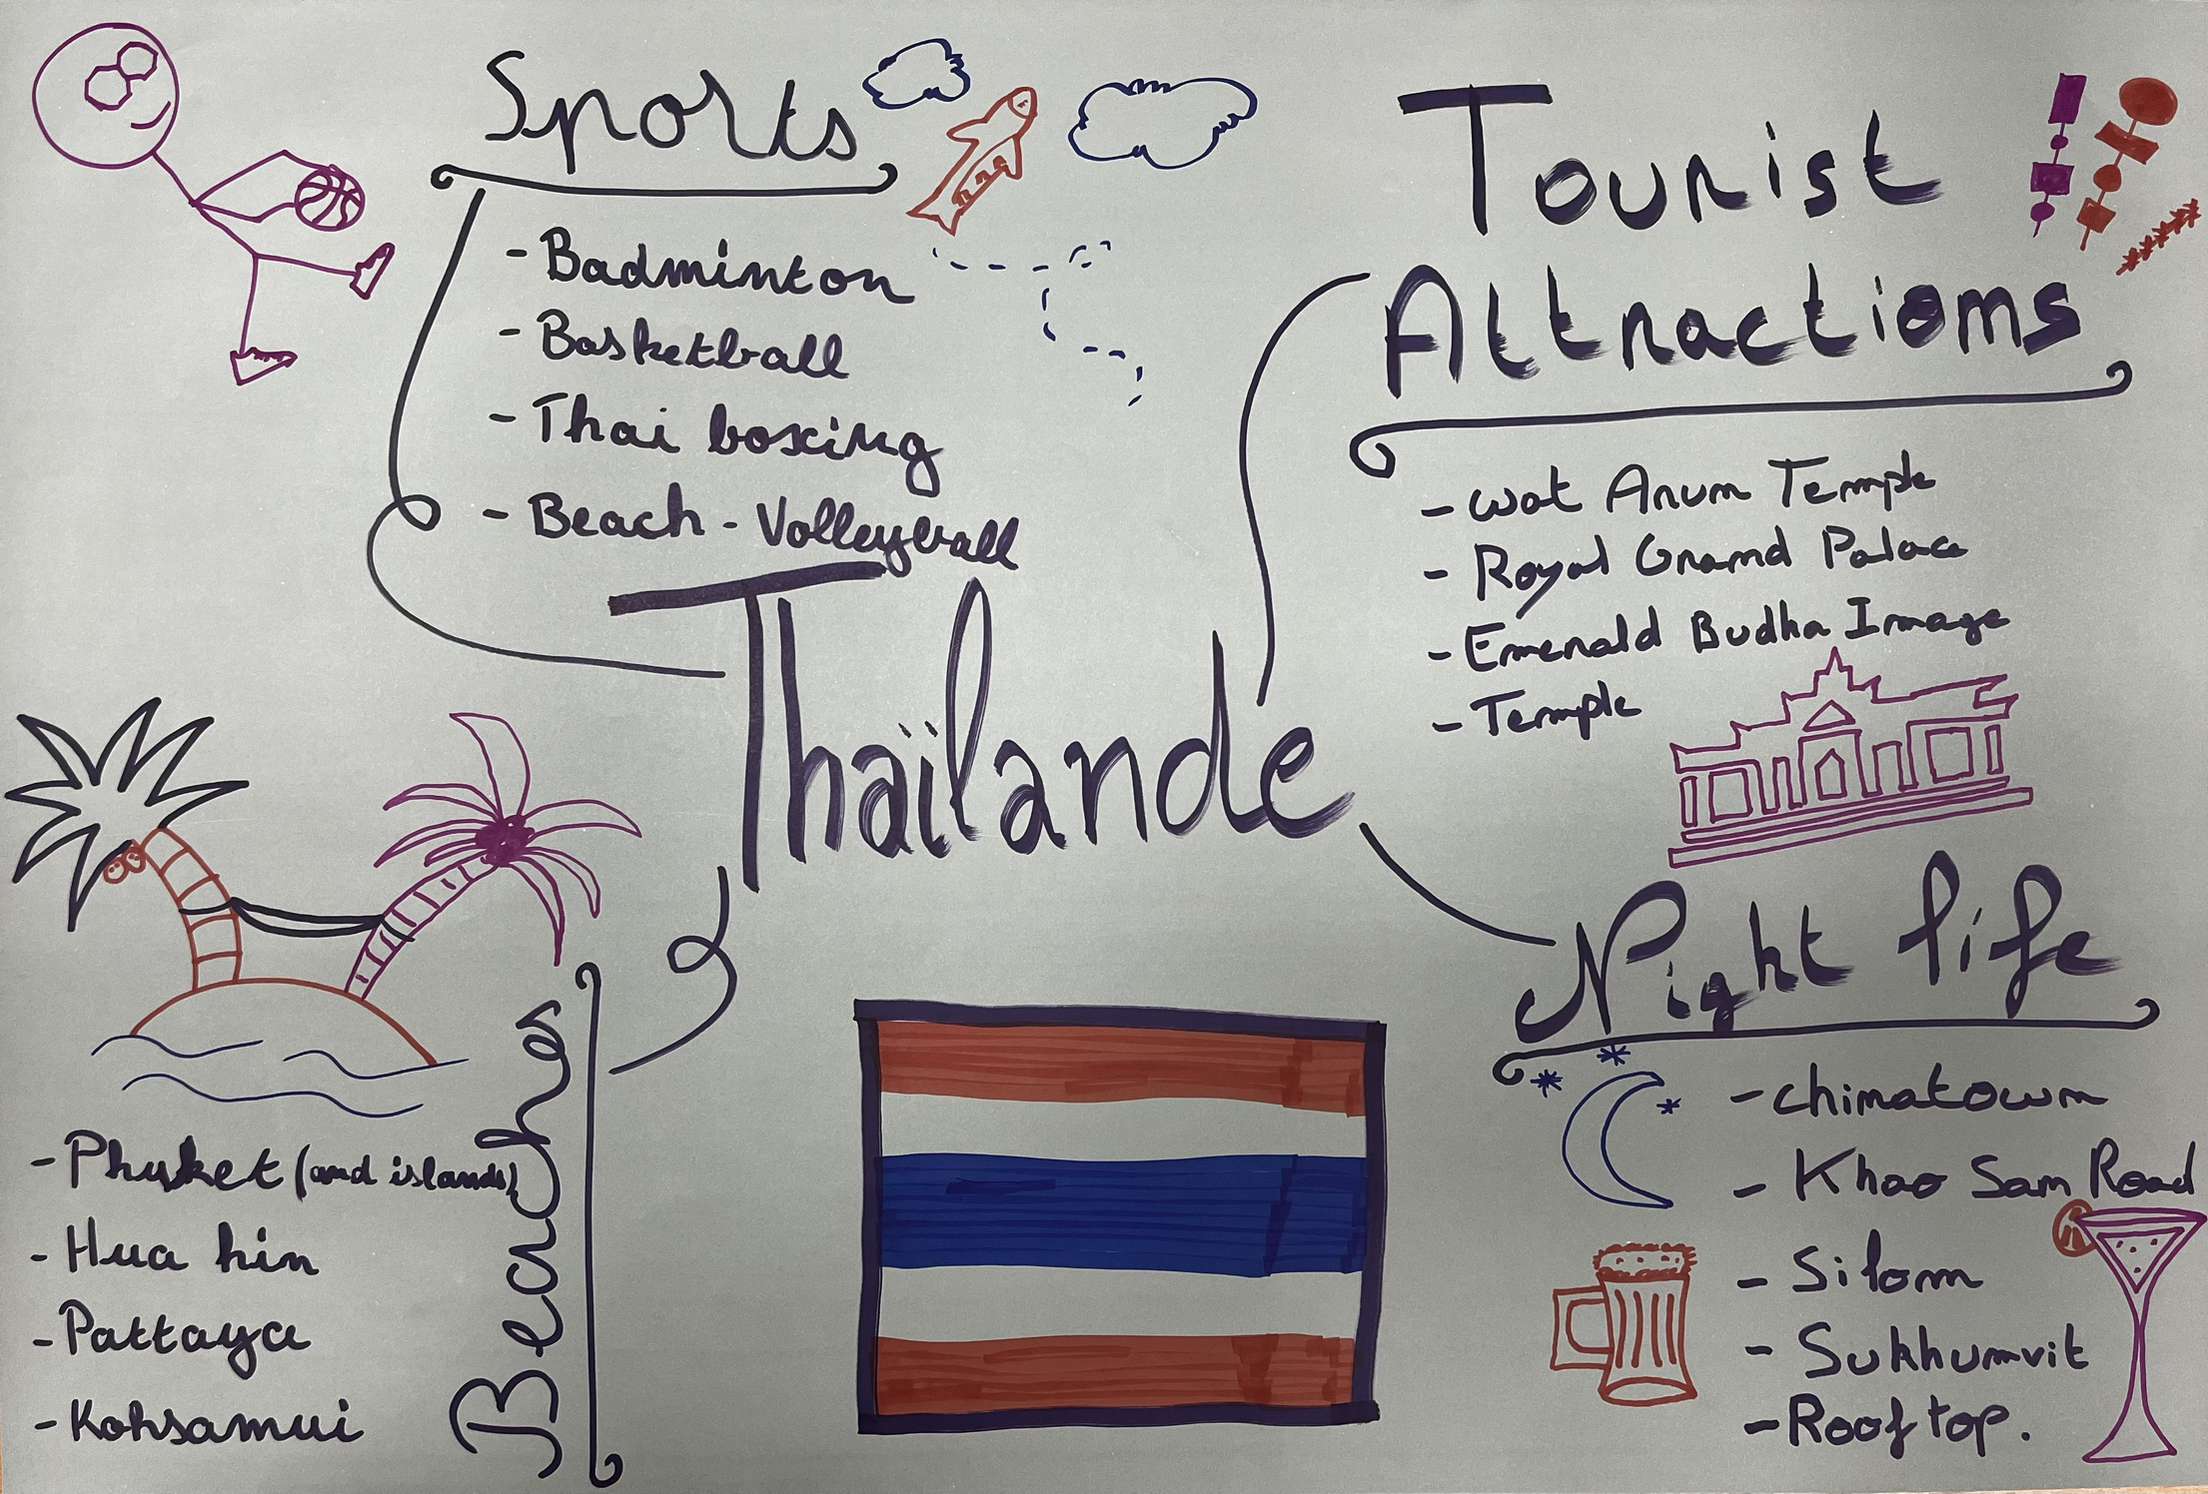 Sports
- Badminton
- Basketball
- Thai boxing
- Beach - Volleyball
Tourist
Attractions
- Wat Arum Temple
- Royal Grand Palace
- Emerald Budha Image
- Temple
Thaïlande
Beaches
- Phuket (and islands)
- Hua hin
- Pattaya
- Kohsamui
Night life
- Chinatown
- Khao San Road
- Silom
- Sukhumvit
- Rooftop.